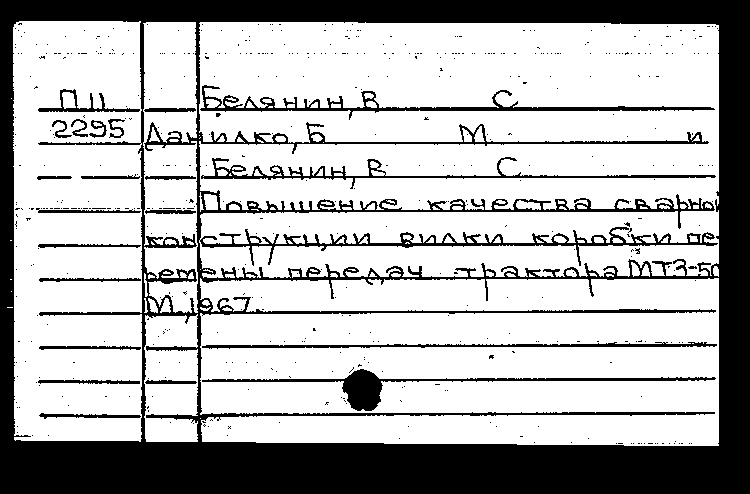 П II Белянин, В С
2295 Данилко, Б М и
Белянин, В С
Повышение качества сварной
конструкции вилки коробки пе-
ремены передач трактора МТЗ-50
М., 1967.